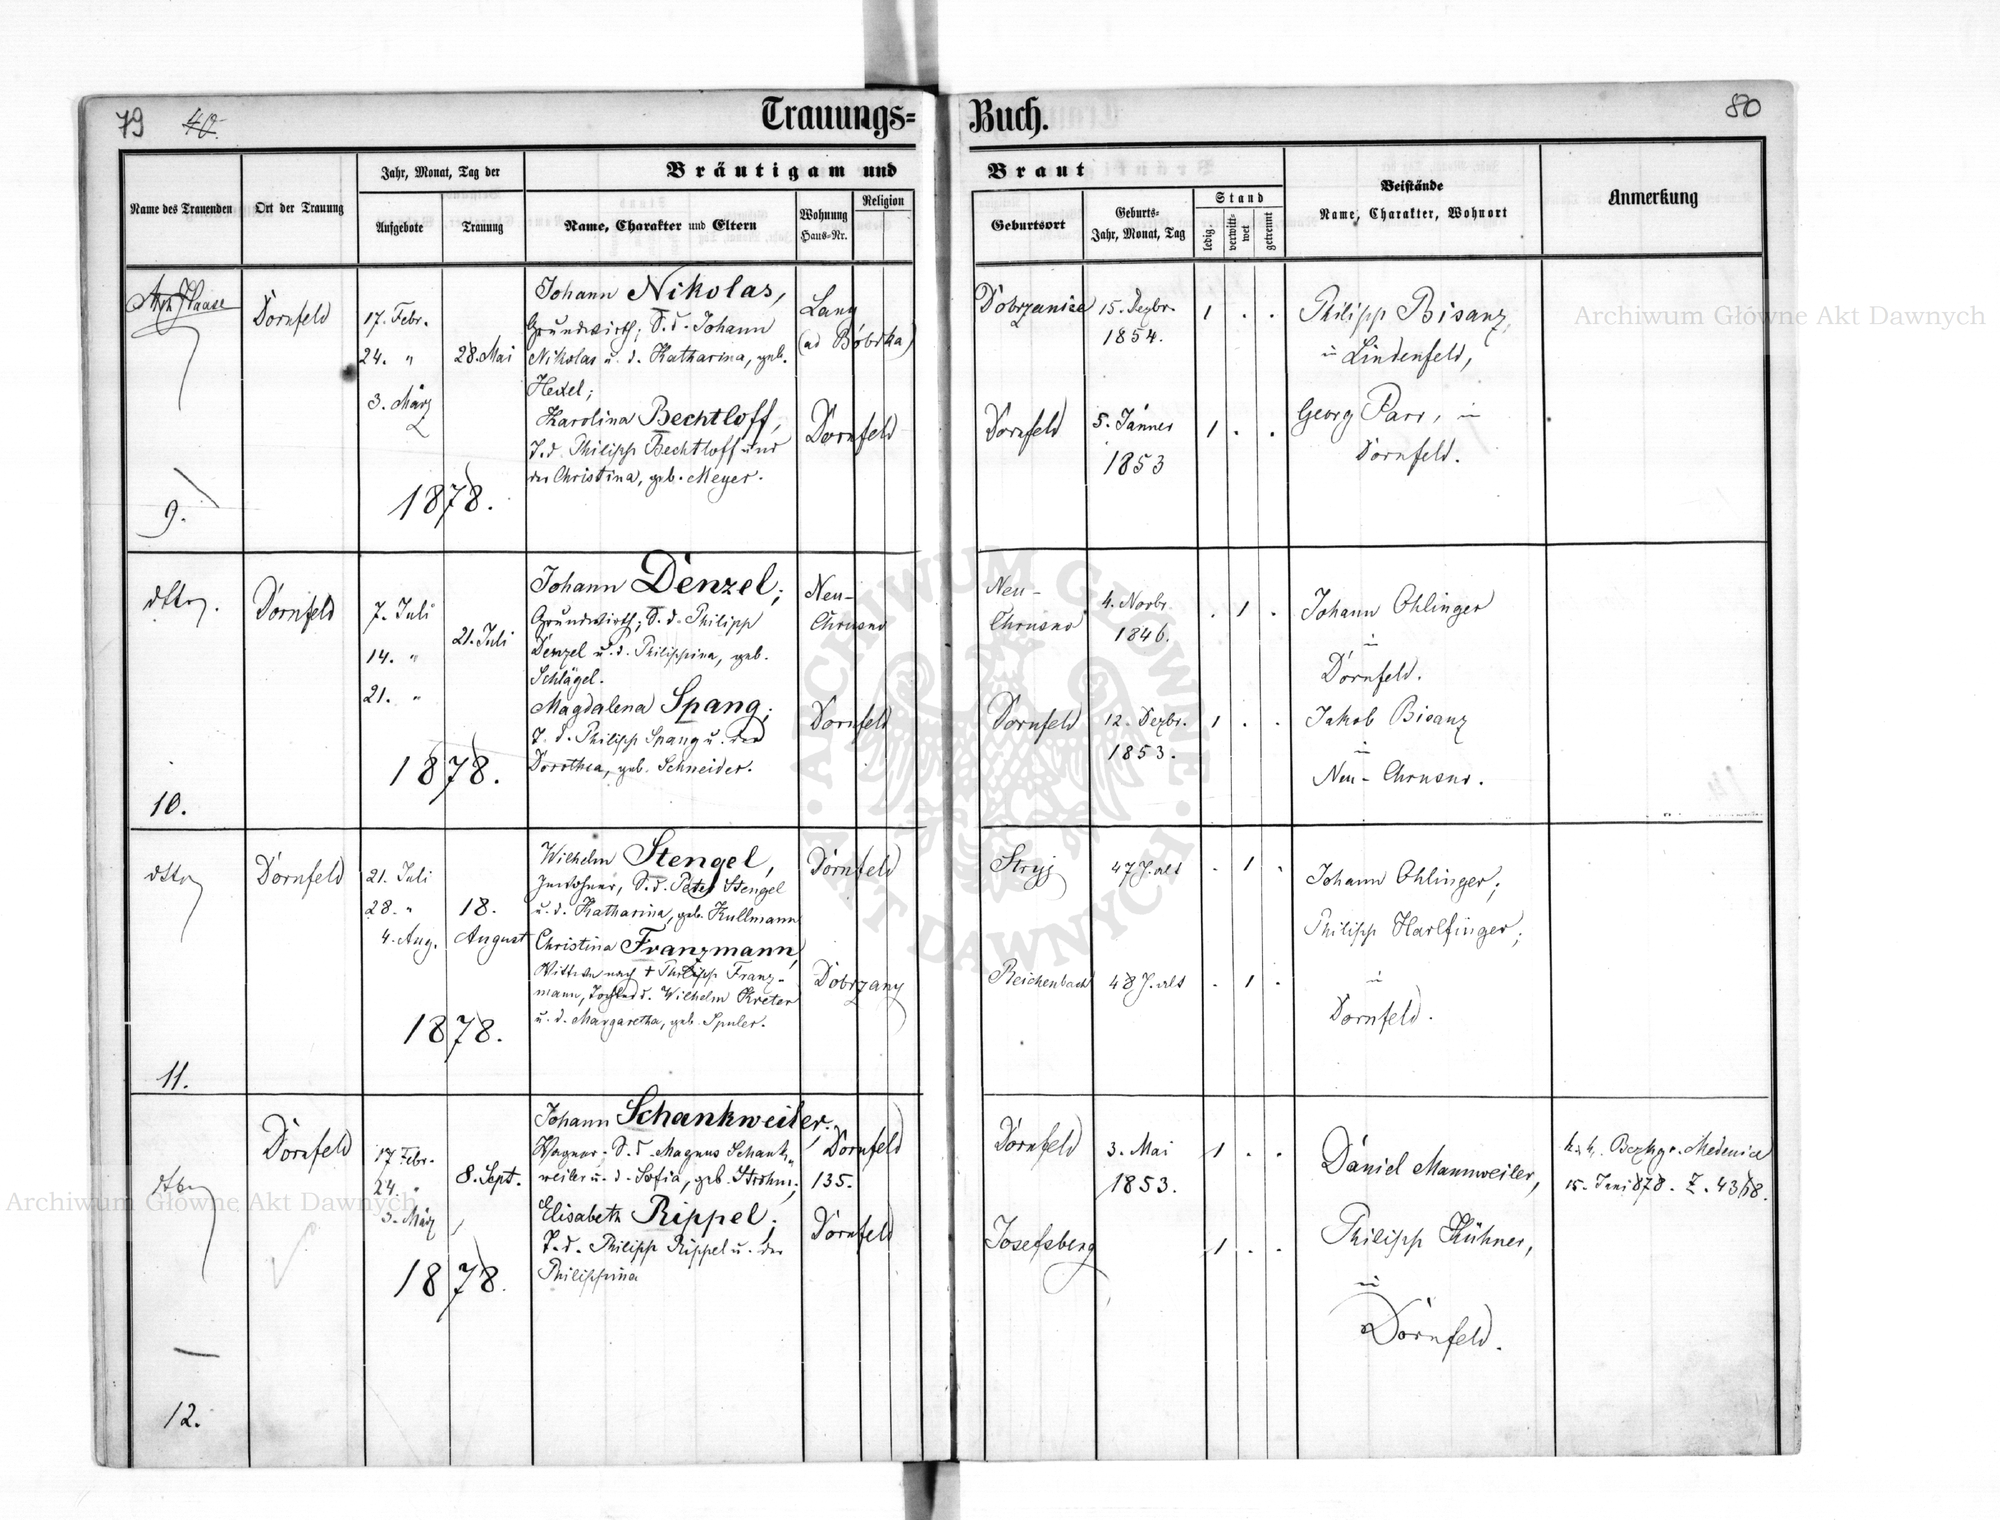 79 40.
Trauungs= Buch.
80
Name des Trauenden
Ort der Trauung
Jahr, Monat, Tag der
Aufgebote
Trauung
Bräutigam und Braut
Name, Charakter und Eltern
Wohnung
Haus=Nr.
Religion
Geburtsort
Geburts=
Jahr, Monat, Tag
Stand
ledig.
verwitt=
wet
getrennt
Beistände
Name, Charakter, Wohnort
Anmerkung
Haase
9.
Dornfeld
17. Febr.
24. "
3. März
28. Mai
1878.
Johann Nikolas,
Grundwirth; S. d. Johann
Nikolas u. d. Katharina, geb.
Hexel;
Karolina Bechtloff,
T. d. Philipp Bechtloff und
der Christina, geb. Meyer.
Lany
(ad Bóbrka)
Dornfeld
Dobrzanice
15. Dezbr.
1854.
1 . .
Dornfeld
5. Jänner
1853
1 . .
Philipp Bisanz,
in Lindenfeld,
Georg Parr, in
Dornfeld.
dtto.
10.
Dornfeld
7. Juli
14. "
21. "
21. Juli
1878.
Johann Denzel;
Grundwirth; S. d. Philipp
Denzel u. d. Philippina, geb.
Schlägel.
Magdalena Spang;
T. d. Philipp Spang u. der
Dorothea, geb. Schneider.
Neu-
Chrusno
Dornfeld
Neu-
Chrusno
4. Novbr.
1846.
. 1 .
Dornfeld
12. Dezbr.
1853.
1 . .
Johann Ohlinger
in
Dornfeld.
Jakob Bisanz
in
Neu-Chrusno.
dtto
11.
Dornfeld
21. Juli
28. "
4. Aug.
18.
August
1878.
Wilhelm Stengel,
Inwohner, S. d. Peter Stengel
u. d. Katharina, geb. Kullmann
Christina Franzmann,
Wittwe nach † Philipp Franz-
mann, Tochter d. Wilhelm Kreter
u. d. Margaretha, geb. Spuler.
Dornfeld
Dobrzany
Stryj
47 J. alt
. 1 .
Reichenbach
48 J. alt
. 1 .
Johann Ohlinger;
Philipp Harlfinger;
in
Dornfeld.
dtto
12.
Dornfeld
17. Febr.
24. "
3. März
8. Sept.
1878.
Johann Schankweiler.
Wagner. S. d. Magnus Schank-
weiler u. d. Sofia, geb. Strohm;
Elisabeth Rippel;
T. d. Philipp Rippel u. der
Philippina
Dornfeld
135.
Dornfeld
Dornfeld
3. Mai
1853.
1 . .
Josefsberg
1 . .
Daniel Mannweiler,
Philipp Kühner,
in
Dornfeld.
k. k. Bezkger. Medenice
15. Juni 878. Z. 4368.
Archiwum Główne Akt Dawnych
Archiwum Główne Akt Dawnych
ARCHIWUM GŁÓWNE AKT DAWNYCH